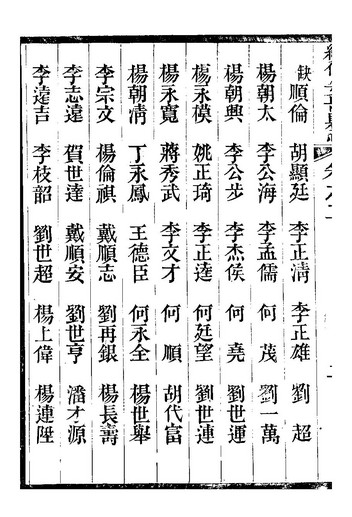 缺順倫 胡顯廷 李正淸 李正雄 劉 超
楊朝太 李公海 李孟儒 何 茂 劉一萬
楊朝興 李公步 李杰侯 何 堯 劉世運
楊永模 姚正琦 李正逵 何廷望 劉世連
楊永寬 蔣秀武 李文才 何 順 胡代富
楊朝淸 丁永鳳 王德臣 何永全 楊世舉
李宗文 楊倫祺 戴順志 劉再銀 楊長壽
李志達 賀世達 戴順安 劉世亨 潘才源
李達吉 李枝韶 劉世超 楊上偉 楊連陞